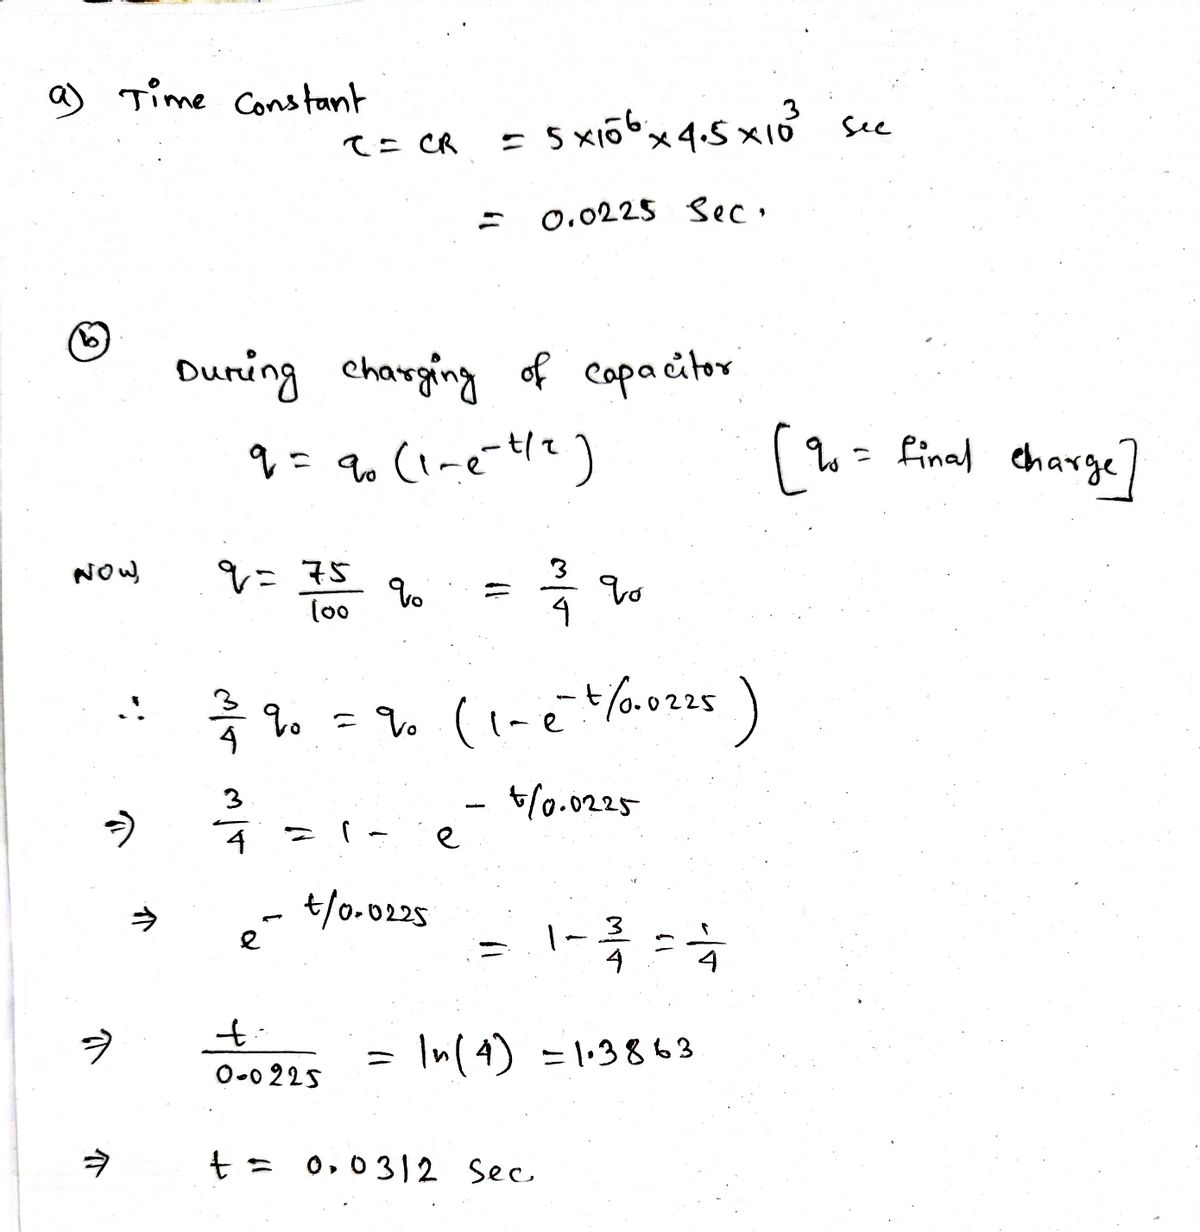 a) Time Constant
τ = CR = 5 × 10⁻⁶ × 4.5 × 10³ sec
= 0.0225 Sec.
(b)
During charging of capacitor
q = q₀ (1 - e^(-t/τ)) [q₀ = final charge]
NOW, q = 75/100 q₀ = 3/4 q₀
∴ 3/4 q₀ = q₀ (1 - e^(-t/0.0225))
⇒ 3/4 = 1 - e^(-t/0.0225)
⇒ e^(-t/0.0225) = 1 - 3/4 = 1/4
⇒ t/0.0225 = ln(4) = 1.3863
⇒ t = 0.0312 Sec.